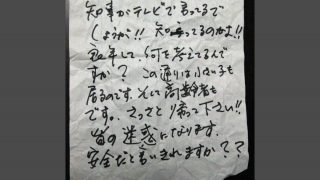 知事がテレビで言ってるで
しょうが!! 知ってるのかよ!!
して、何を考えてるんで
すか? この通りは小さい子も
居るのです。そして高齢者も
です。さっさと帰って下さい!!
皆の迷惑になります。
安全だと言いきれますか??